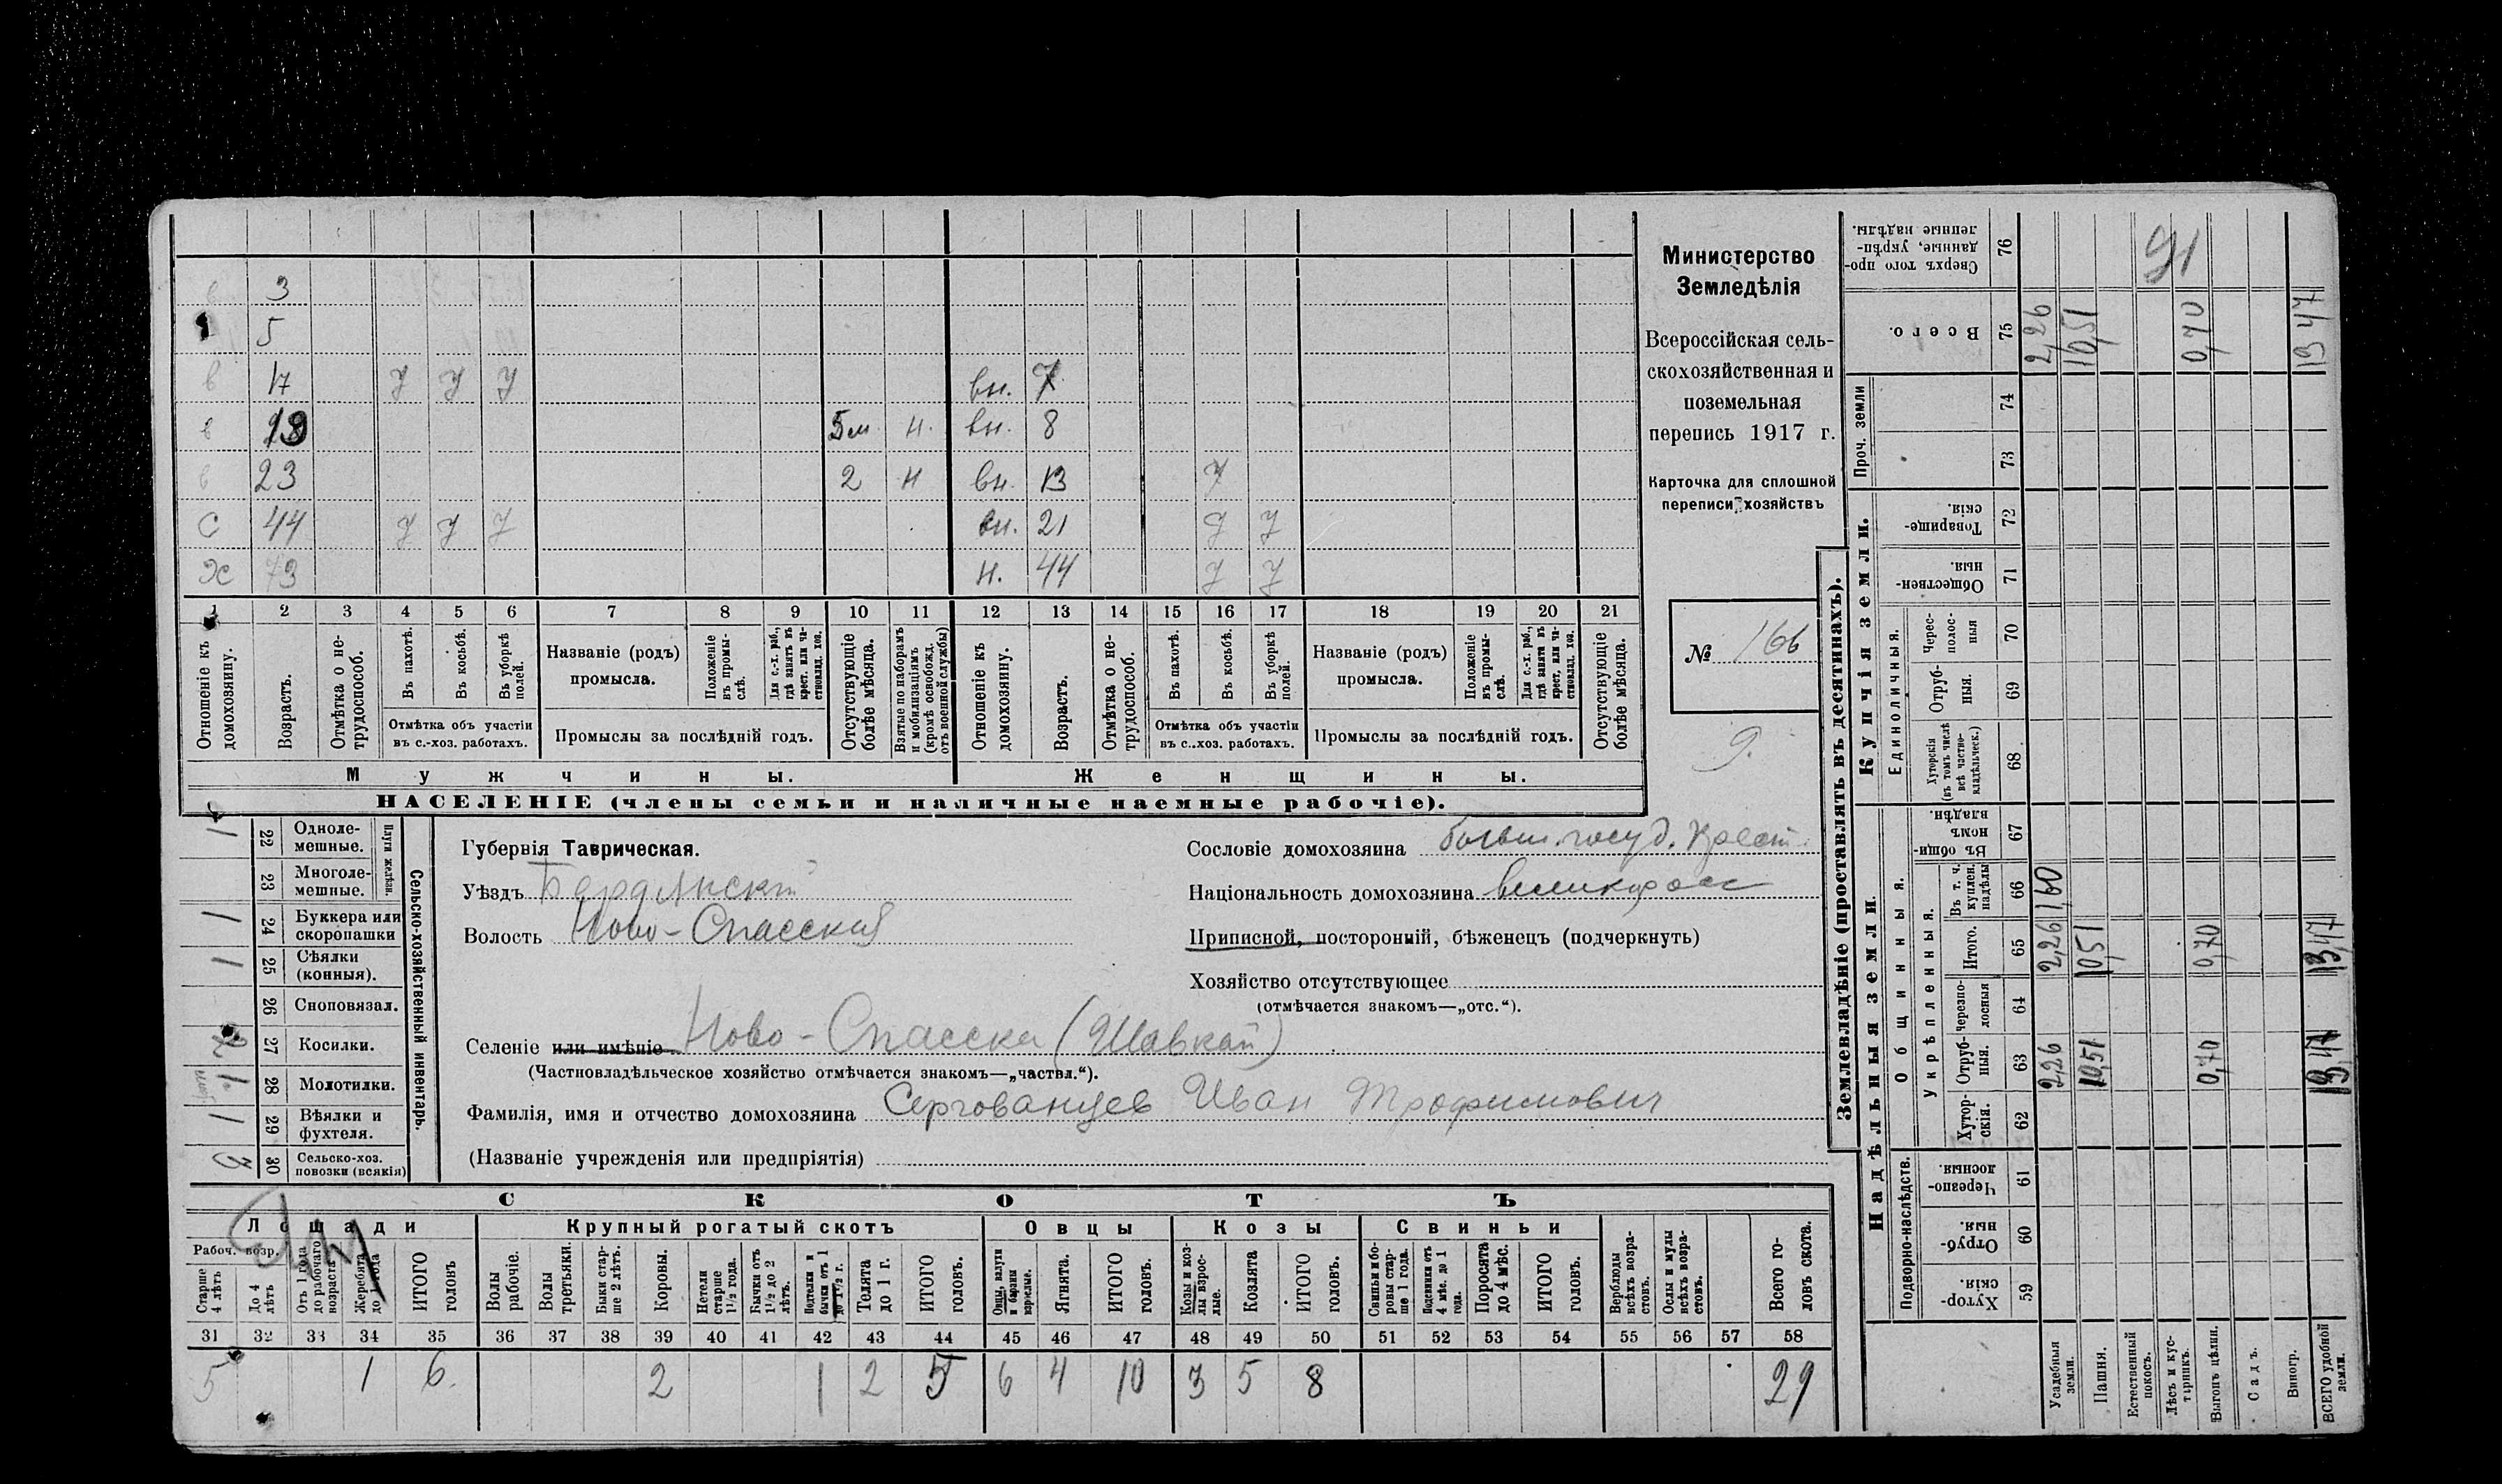 3
5
в 17 У У У вн. 7
в 19 5 м. н. вн. 8
в 23 2 н вн. 13 У
С 44 У У У вн. 21 У У
Х 73 н. 44 У У
1 2 3 4 5 6 7 8 9 10 11 12 13 14 15 16 17 18 19 20 21
Отношеніе къ домохозяину.
Возрастъ.
Отмѣтка о не-трудоспособ.
Въ пахотѣ.
Въ косьбѣ.
Въ уборкѣ полей.
Отмѣтка объ участіи въ с.-хоз. работахъ.
Названіе (родъ) промысла.
Положеніе въ промы-слѣ.
Для с.-х. раб., гдѣ занятъ въ крест. или ча-стновлад. хоз.
Промыслы за послѣдній годъ.
Отсутствующіе болѣе мѣсяца.
Взятые по наборамъ и мобилизаціямъ (кромѣ освобожд. отъ военной службы)
Отношеніе къ домохозяину.
Возрастъ.
Отмѣтка о не-трудоспособ.
Въ пахотѣ.
Въ косьбѣ.
Въ уборкѣ полей.
Отмѣтка объ участіи въ с.-хоз. работахъ.
Названіе (родъ) промысла.
Положеніе въ промы-слѣ.
Для с.-х. раб., гдѣ занята въ крест. или ча-стновлад. хоз.
Промыслы за послѣдній годъ.
Отсутствующіе болѣе мѣсяца.
Мужчины. Женщины.
НАСЕЛЕНІЕ (члены семьи и наличные наемные рабочіе).
Министерство
Земледѣлія
Всероссійская сель-
скохозяйственная и
поземельная
перепись 1917 г.
Карточка для сплошной
переписи хозяйствъ
№ 166
9.
1 22 Одноле-мешные.
23 Многоле-мешные.
Плуги желѣзн.
1 24 Буккера или скоропашки
1 25 Сѣялки (конныя).
26 Сноповязал.
27 Косилки.
1 28 Молотилки.
1 29 Вѣялки и фухтеля.
30 Сельско-хоз. повозки (всякія)
Сельско-хозяйственный инвентарь.
Губернія Таврическая.
Уѣздъ Бердянскій
Волость Ново-Спасская
Селеніе или имѣніе Ново-Спасска (Шавкай)
(Частновладѣльческое хозяйство отмѣчается знакомъ—„частвл.“).
Фамилія, имя и отчество домохозяина Сергованцев Иван Трофимович
(Названіе учрежденія или предпріятія)
Сословіе домохозяина бывш. госуд. крест.
Національность домохозяина великорос
Приписной, посторонній, бѣженецъ (подчеркнуть)
Хозяйство отсутствующее
(отмѣчается знакомъ—„отс.“).
СКОТЪ
Лошади Крупный рогатый скотъ Овцы Козы Свиньи
Рабоч. возр.
Старше 4 лѣтъ
До 4 лѣтъ
Отъ 1 года до рабочаго возраста
Жеребята до 1 года
ИТОГО головъ
Волы рабочіе.
Волы третьяки.
Быки стар-ше 2 лѣтъ.
Коровы.
Нетели старше 1½ года.
Бычки отъ 1½ до 2 лѣтъ.
Подтелки и бычки отъ 1 до 1½ г.
Телята до 1 г.
ИТОГО головъ.
Овцы, валухи и бараны взрослые.
Ягнята.
ИТОГО головъ.
Козы и коз-лы взрос-лые.
Козлята
ИТОГО головъ.
Свиньи и бо-ровы стар-ше 1 года.
Подсвинки отъ 4 мѣс. до 1 года.
Поросята до 4 мѣс.
ИТОГО головъ.
Верблюды всѣхъ возра-стовъ.
Ослы и мулы всѣхъ возра-стовъ.
Всего го-ловъ скота.
31 32 33 34 35 36 37 38 39 40 41 42 43 44 45 46 47 48 49 50 51 52 53 54 55 56 57 58
5 1 6. 2 1 2 5 6 4 10 3 5 8 29
Землевладѣніе (проставлять въ десятинахъ).
Надѣльныя земли. Купчія земли. Проч. земли
Подворно-наслѣдств. Общинныя. Укрѣпленныя. Единоличныя.
Хутор-скія. 59
Отруб-ныя. 60
Черезпо-лосныя 61
Хутор-скія. 62
Отруб-ныя. 63
Черезпо-лосныя 64
Итого. 65
Въ т. ч. куплен. надѣлы 66
Въ общи-номъ владѣн. 67
Хуторскія (въ томъ числѣ всѣ частно-владѣльческ.) 68
Отруб-ныя. 69
Черес-полос-ныя 70
Обществен-ныя. 71
Товарище-скія. 72
73
74
Всего. 75
Сверхъ того про-данные, укрѣп-ленные надѣлы. 76
Усадебныя земли. 2,26 2,26 1,60 2,26
Пашня. 10,51 10,51 10,51
Естественный покосъ.
Лѣсъ и кус-тарникъ.
Выгонъ цѣлин. 0,70 0,70 0,70
Садъ.
Виногр.
ВСЕГО удобной земли. 13,47 13,47 13 47
91